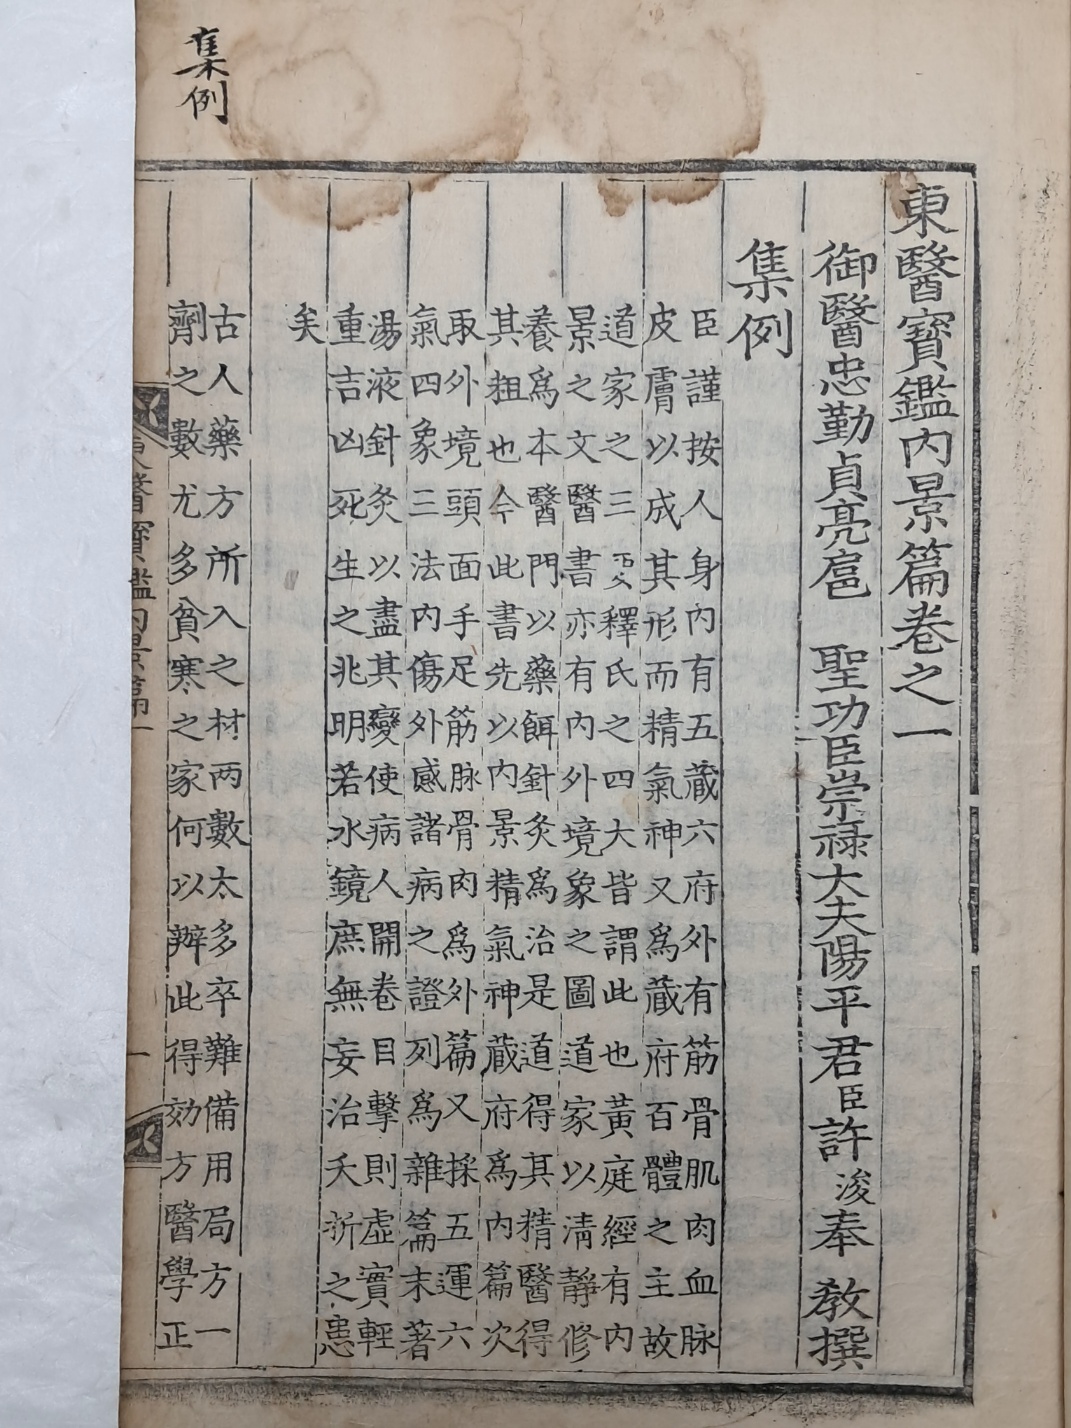 集例
東醫寶鑑內景篇卷之一
御醫忠勤貞亮扈 聖功臣崇祿大夫陽平君臣許浚奉 敎撰
集例
臣謹按人身內有五藏六府外有筋骨肌肉血脉
皮膚以成其形而精氣神又爲藏府百體之主故
道家之三要釋氏之四大皆謂此也黃庭經有內
景之文醫書亦有內外境象之圖道家以淸靜修
養爲本醫門以藥餌針灸爲治是道得其精醫得
其粗也今此書先以內景精氣神藏府爲內篇次
取外境頭面手足筋脉骨肉爲外篇又採五運六
氣四象三法內傷外感諸病之證列爲雜篇末著
湯液針灸以盡其變使病人開卷目擊則虛實輕
重吉凶死生之兆明若水鏡庶無妄治夭折之患
矣
古人藥方所入之材兩數太多卒難備用局方一
劑之數尤多貧寒之家何以辦此得効方醫學正
東醫寶鑑內景篇一
一